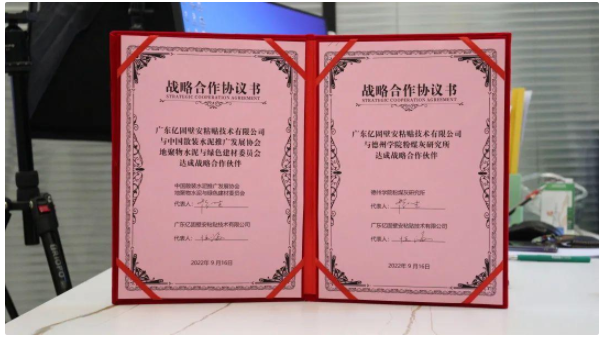 战略合作协议书
STRATEGIC COOPERATION AGREEMENT
广东亿固壁安粘贴技术有限公司
与中国散装水泥推广发展协会
地聚物水泥与绿色建材委员会
达成战略合作伙伴
中国散装水泥推广发展协会
地聚物水泥与绿色建材委员会
代表人:
广东亿固壁安粘贴技术有限公司
代表人:
2022年9月16日
战略合作协议书
STRATEGIC COOPERATION AGREEMENT
广东亿固壁安粘贴技术有限公司
与德州学院粉煤灰研究所
达成战略合作伙伴
德州学院粉煤灰研究所
代表人:
广东亿固壁安粘贴技术有限公司
代表人:
2022年9月16日